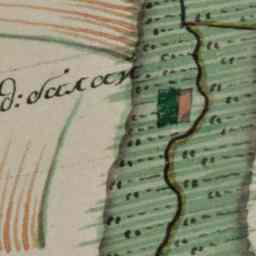 д: балан